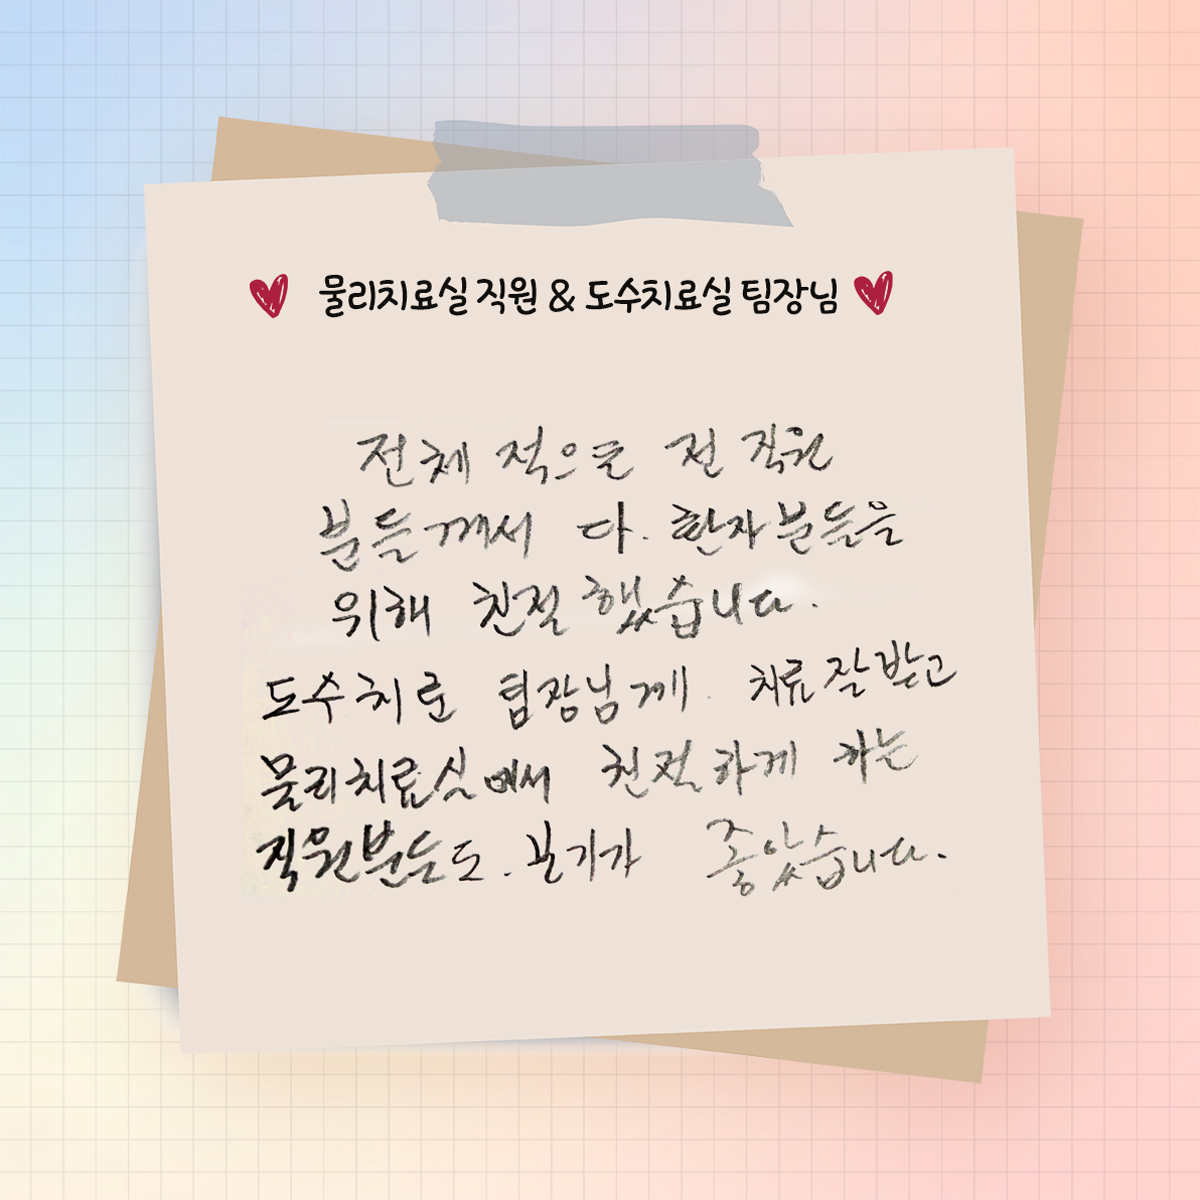 물리치료실 직원 & 도수치료실 팀장님
전체 적으로 전 직원
분들께서 다. 환자분들을
위해 친절 했습니다.
도수치료 팀장님께 치료 잘 받고
물리치료실에서 친절하게 하는
직원분들도. 보기가 좋았습니다.